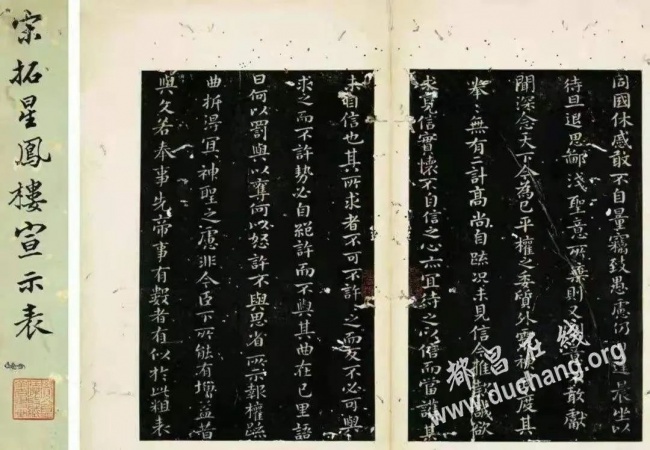 宗拓星鳳樓宣示表
同國休慼敢不自量竊致愚慮仍日達晨坐以
待旦退思鄙淺聖意所棄則又割意不敢獻
聞深念天下今為已平權之委質外震神度其
拳〻無有二計高尚自疏況未見信今推款誠欲
求見信實懷不自信之心亦宜待之以信而當護其
未自信也其所求者不可不許〻之而反不必可與
求之而不許勢必自絕許而不與其曲在己里語
曰何以罰與以奪何以怒許不與思省所示報權疏
曲折得宜神聖之慮非今臣下所能有增益昔
與文若奉事先帝事有數者有似於此粗表
都昌在线
www.duchang.org